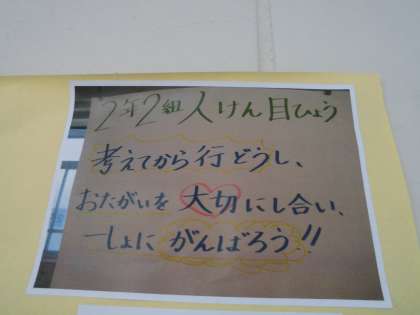 2年2組人けん目ひょう
考えてから行どうし、
おたがいを大切にし合い、
一しょにがんばろう!!